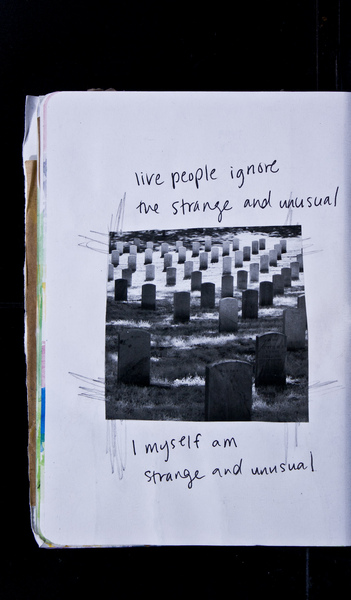 live people ignore
the strange and unusual
I myself am
strange and unusual